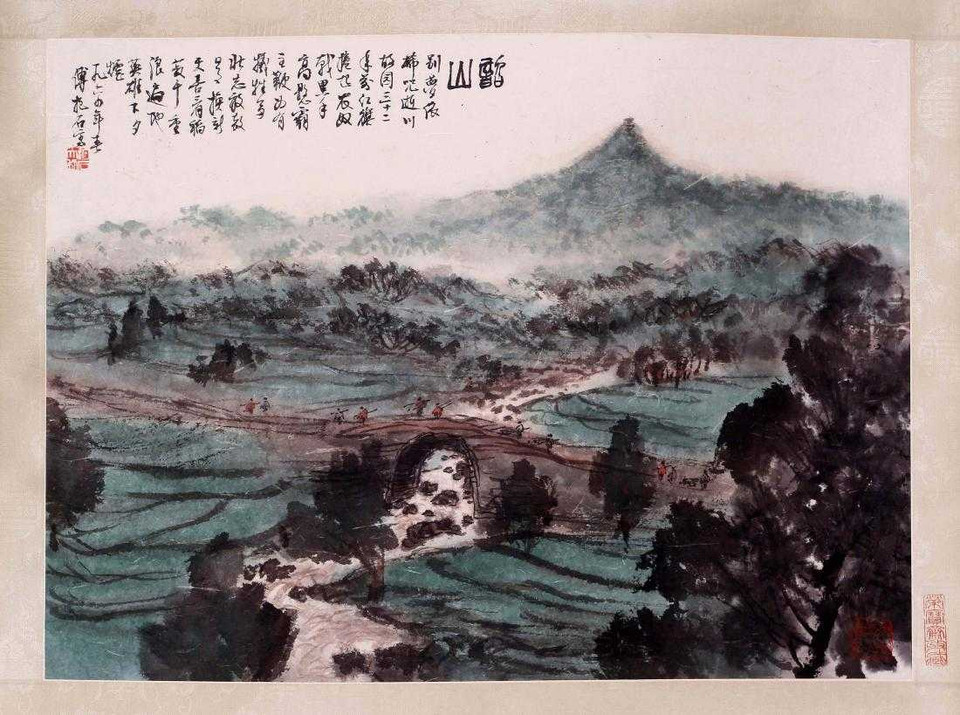 韶山
別夢依
稀咒逝川
故园三十二
年前红旗
捲起农奴
戟黑手
高懸霸
主鞭为有
犧牲多
壮志敢教
日月换新
天喜看稻
菽千重
浪遍地
英雄下夕
烟
一九六四年春
傅抱石写